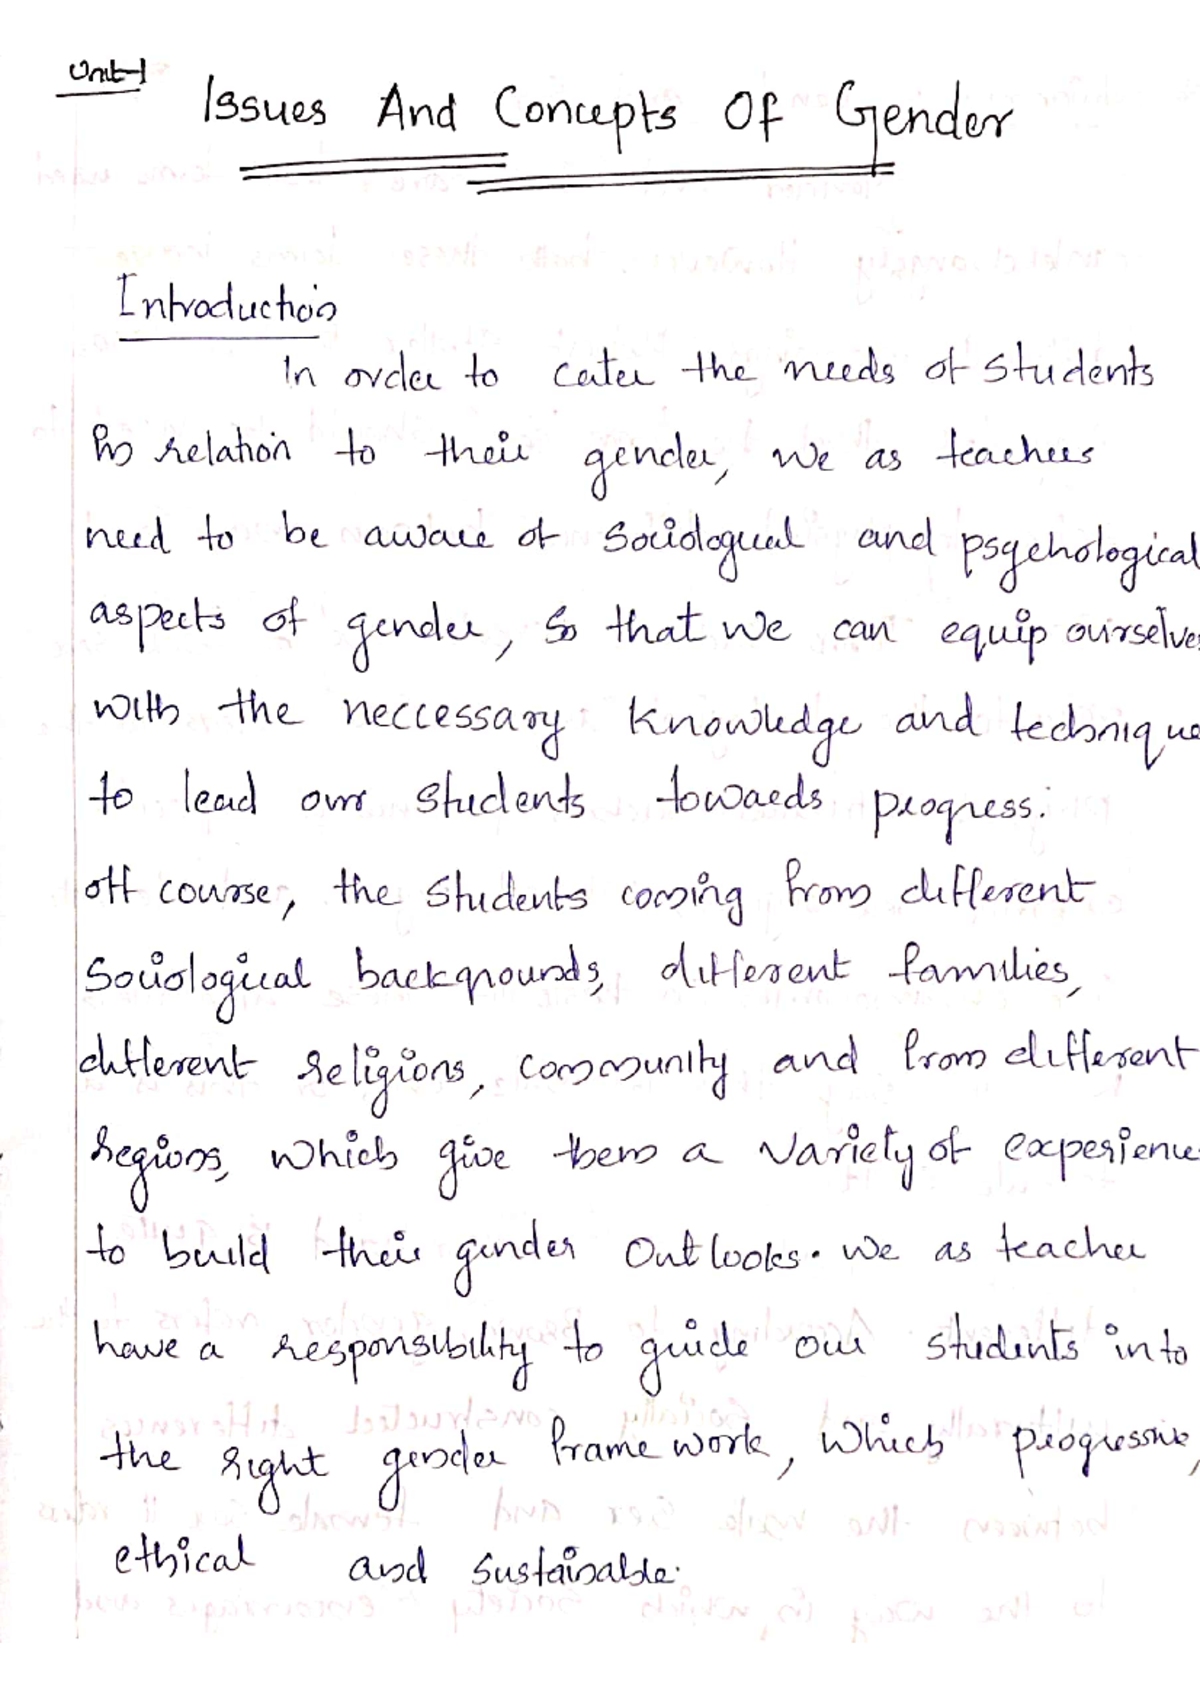 Unit-1
Issues And Concepts Of Gender
Introduction
In order to cater the needs of students
in relation to their gender, we as teachers
need to be aware of sociological and psychological
aspects of gender, so that we can equip ourselves
with the neccessary knowledge and technique
to lead our students towards progress.
off course, the students coming from different
sociological backgrounds, different families,
different religions, community and from different
regions, which give them a variety of experience
to build their gender outlooks. we as teacher
have a responsibility to guide our students into
the right gender frame work, which progressive,
ethical and sustainable.